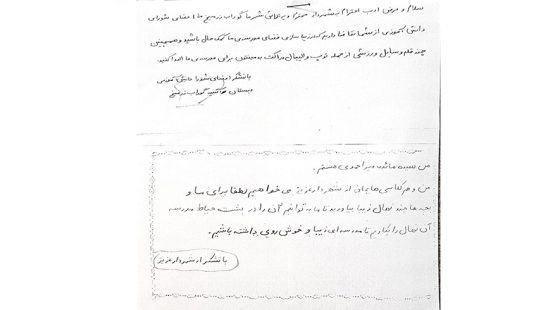 سلام و عرض ادب احترام به شهردار محترم و پرتلاش شهر ما گوراب زرمیخ ما اعضای شورای
دانش آموزی از شما تقاضا داریم که در زیباسازی فضای مدرسه ی ما کمک حال باشید و همچنین
چند قلم وسایل ورزشی از جمله توپ والیبال و راکت بدمینتون برای مدرسه ی ما اهدا کنید.
با تشکر اعضای شورا دانش آموزی
دبستان گوراب زرمیخ
من سیده مائده میراحمدی هستم.
من و هم کلاسی هایمان از شهردار عزیز می خواهیم لطفا برای ما و
بچه ها چند نهال زیبا بیاورید تا ما بتوانیم آن را در پشت حیاط مدرسه
آن نهال را بکاریم تا مدرسه ای زیبا و خوش روی داشته باشیم.
با تشکر از شهردار عزیز